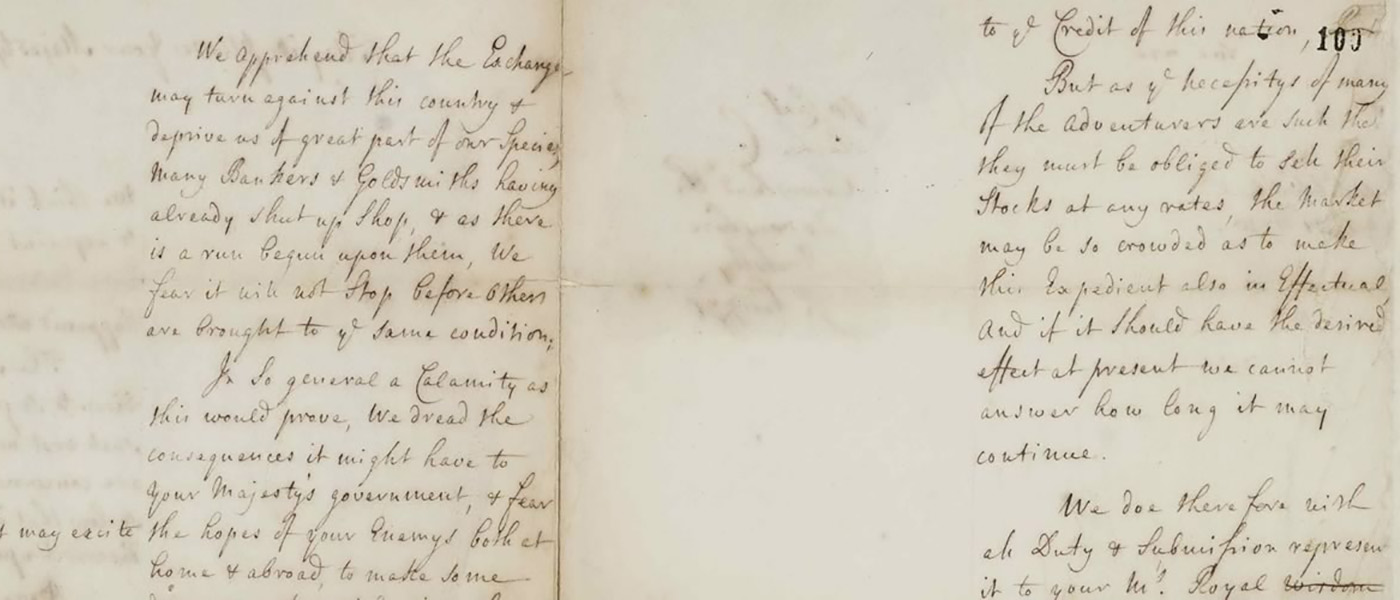 We apprehend that the Exchange
may turn against this country &
deprive us of great part of our Specie,
Many Bankers & Goldsmiths having
already shut up Shop, & as there
is a run begun upon them, We
fear it will not Stop before others
are brought to yᵉ same condition;
In So general a Calamity as
this would prove, We dread the
consequences it might have to
your Majesty's government, & fear
may excite
the hopes of your Enemys both at
home & abroad, to make some
to yᵉ Credit of this nation,
100
But as yᵉ necessitys of many
of the Adventurers are such that
they must be obliged to sell their
Stocks at any rates, the Market
may be so crowded as to make
this Expedient also in Effectual,
And if it should have the desired
effect at present we cannot
answer how long it may
continue.
We doe therefore with
all Duty & Submission represen
it to your Mᵗʸ. Royal wisdom